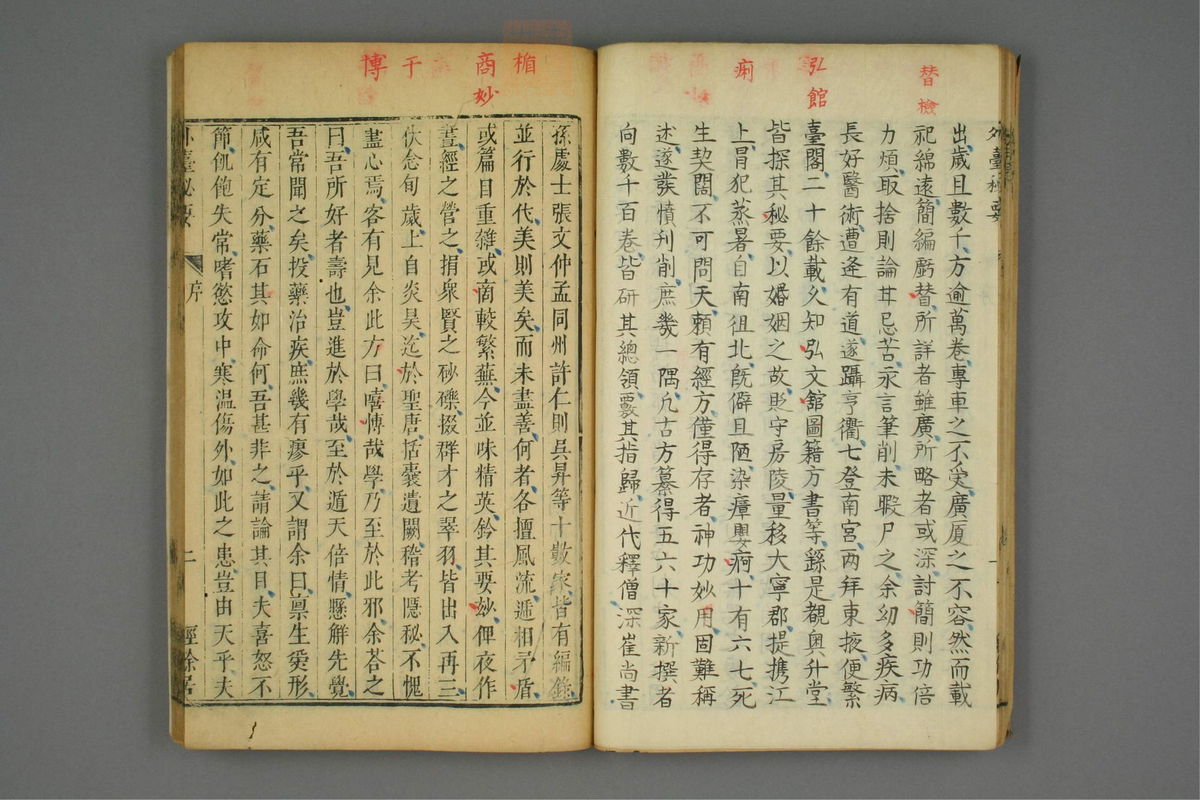 替檢
弘館
痢
外臺秘要
出歲且數千方逾萬卷專車之不受廣厦之不容然而載
祀綿遠簡編虧替所詳者雖廣所略者或深討簡則功倍
力煩取捨則論甘忌苦永言筆削未暇尸之余幼多疾病
長好醫術遭逢有道遂躡亨衢七登南宮兩拜東掖便繁
臺閣二十餘載久知弘文舘圖籍方書等繇是覩奥升堂
皆探其秘要以婚姻之故貶守房陵量移大寧郡提携江
上冒犯蒸暑自南徂北旣僻且陋染瘴嬰痾十有六七死
生契闊不可問天賴有經方僅得存者神功妙用固難稱
述遂發憤刊削庶幾一隅凡古方纂得五六十家新撰者
向數千百卷皆研其總領覈其指歸近代釋僧深崔尚書
楯
商妙
于
博
孫處士張文仲孟同州許仁則吳昇等十數家皆有編錄
並行於代美則美矣而未盡善何者各擅風流遞相矛盾
或篇目重雜或商較繁蕪今並味精英鈐其要妙俾夜作
晝經之營之捐衆賢之砂礫掇群才之翠羽皆出入再三
伏念旬歲上自炎昊迄於聖唐括囊遺闕稽考隱秘不愧
盡心焉客有見余此方曰嘻博哉學乃至於此邪余荅之
曰吾所好者壽也豈進於學哉至於遁天倍情懸解先覺
吾常聞之矣投藥治疾庶幾有瘳乎又謂余曰禀生受形
咸有定分藥石其如命何吾甚非之請論其目夫喜怒不
節飢飽失常嗜慾攻中寒温傷外如此之患豈由天乎夫
外臺秘要 序 二 經餘居